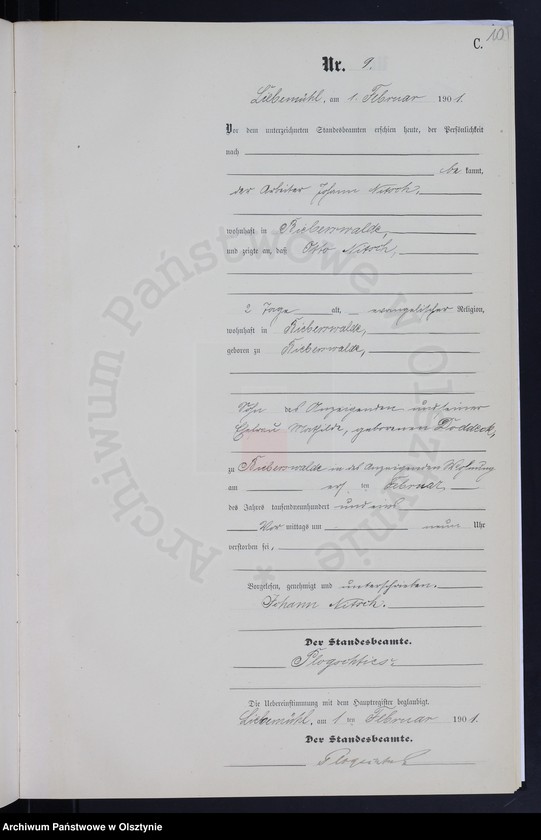 C.
101
Nr. 9.
Liebemühl, am 1. Februar 1901.
Vor dem unterzeichneten Standesbeamten erschien heute, der Persönlichkeit
nach
be kannt,
der Arbeiter Johann Nitsch,
wohnhaft in Bieberswalde,
und zeigte an, daß Otto Nitsch,
2 Tage alt, evangelischer Religion,
wohnhaft in Bieberswalde,
geboren zu Bieberswalde,
Sohn des Anzeigenden und seiner
Ehefrau Mathilde, geborenen Doddeck,
zu Bieberswalde in des Anzeigenden Wohnung
am ersten Februar
des Jahres tausendneunhundert und eins
Vor mittags um neun Uhr
verstorben sei,
Vorgelesen, genehmigt und unterschrieben.
Johann Nitsch.
Der Standesbeamte.
Die Uebereinstimmung mit dem Hauptregister beglaubigt.
Liebemühl, am 1 ten Februar 1901.
Der Standesbeamte.
Archiwum Państwowe w Olsztynie *
Archiwum Państwowe w Olsztynie